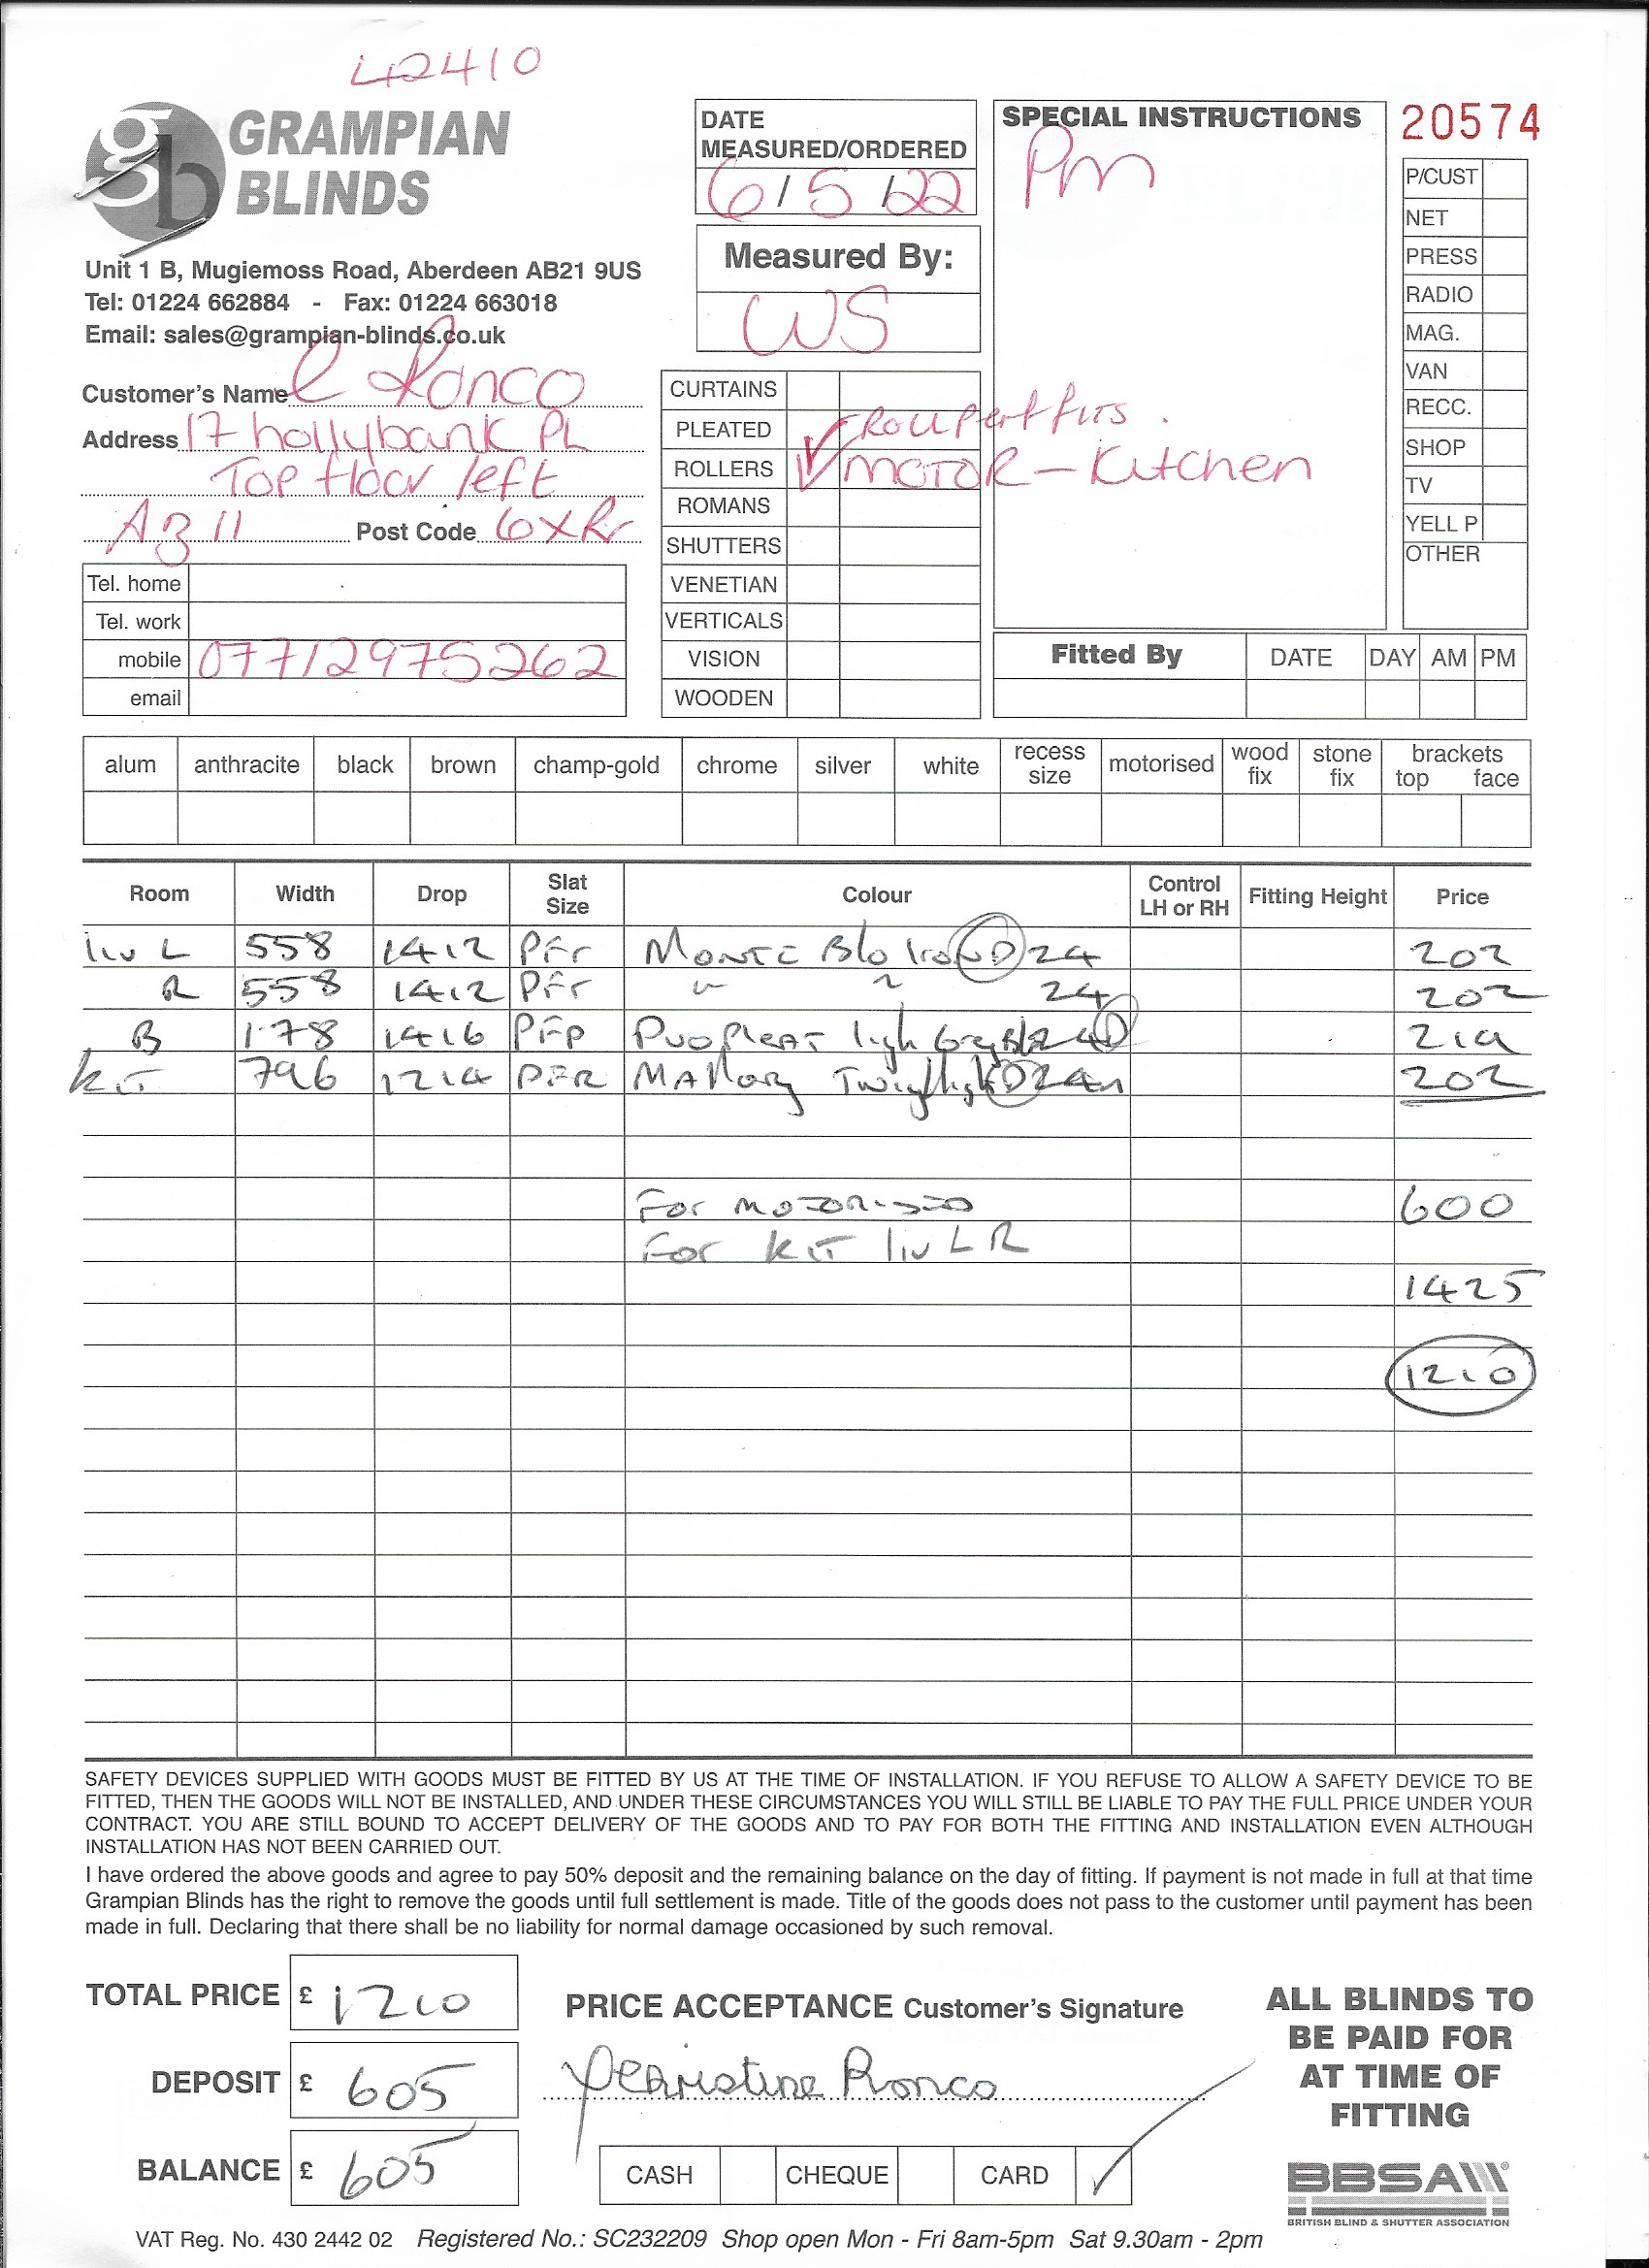 42410
GRAMPIAN
BLINDS
Unit 1 B, Mugiemoss Road, Aberdeen AB21 9US
Tel: 01224 662884 - Fax: 01224 663018
Email: sales@grampian-blinds.co.uk
DATE
MEASURED/ORDERED
6/5/22
Measured By:
WS
SPECIAL INSTRUCTIONS
Pm
20574
P/CUST
NET
PRESS
RADIO
MAG.
VAN
RECC.
SHOP
TV
YELL P
OTHER
Customer's Name C Ronco
Address 17 hollybank PL
Top floor left
AB 11 Post Code 6XR
Tel. home
Tel. work
mobile 07712975262
email
CURTAINS
PLEATED
ROLLERS MOTOR - Kitchen
ROMANS
SHUTTERS
VENETIAN
VERTICALS
VISION
WOODEN
Fitted By DATE DAY AM PM
alum anthracite black brown champ-gold chrome silver white recess size motorised wood fix stone fix brackets top face
Room Width Drop Slat Size Colour Control LH or RH Fitting Height Price
liv L 558 1412 PFr Monte 24 202
R 558 1412 PFr " " 24 202
B 1178 1416 PFP Duopleat 219
KIT 796 1214 PFR Mallory 202
For motorised 600
For KIT liv L R
1425
1210
SAFETY DEVICES SUPPLIED WITH GOODS MUST BE FITTED BY US AT THE TIME OF INSTALLATION. IF YOU REFUSE TO ALLOW A SAFETY DEVICE TO BE
FITTED, THEN THE GOODS WILL NOT BE INSTALLED, AND UNDER THESE CIRCUMSTANCES YOU WILL STILL BE LIABLE TO PAY THE FULL PRICE UNDER YOUR
CONTRACT. YOU ARE STILL BOUND TO ACCEPT DELIVERY OF THE GOODS AND TO PAY FOR BOTH THE FITTING AND INSTALLATION EVEN ALTHOUGH
INSTALLATION HAS NOT BEEN CARRIED OUT.
I have ordered the above goods and agree to pay 50% deposit and the remaining balance on the day of fitting. If payment is not made in full at that time
Grampian Blinds has the right to remove the goods until full settlement is made. Title of the goods does not pass to the customer until payment has been
made in full. Declaring that there shall be no liability for normal damage occasioned by such removal.
TOTAL PRICE £ 1210
DEPOSIT £ 605
BALANCE £ 605
PRICE ACCEPTANCE Customer's Signature
Christine Ronco
CASH CHEQUE CARD ✓
ALL BLINDS TO
BE PAID FOR
AT TIME OF
FITTING
BBSA
BRITISH BLIND & SHUTTER ASSOCIATION
VAT Reg. No. 430 2442 02 Registered No.: SC232209 Shop open Mon - Fri 8am-5pm Sat 9.30am - 2pm